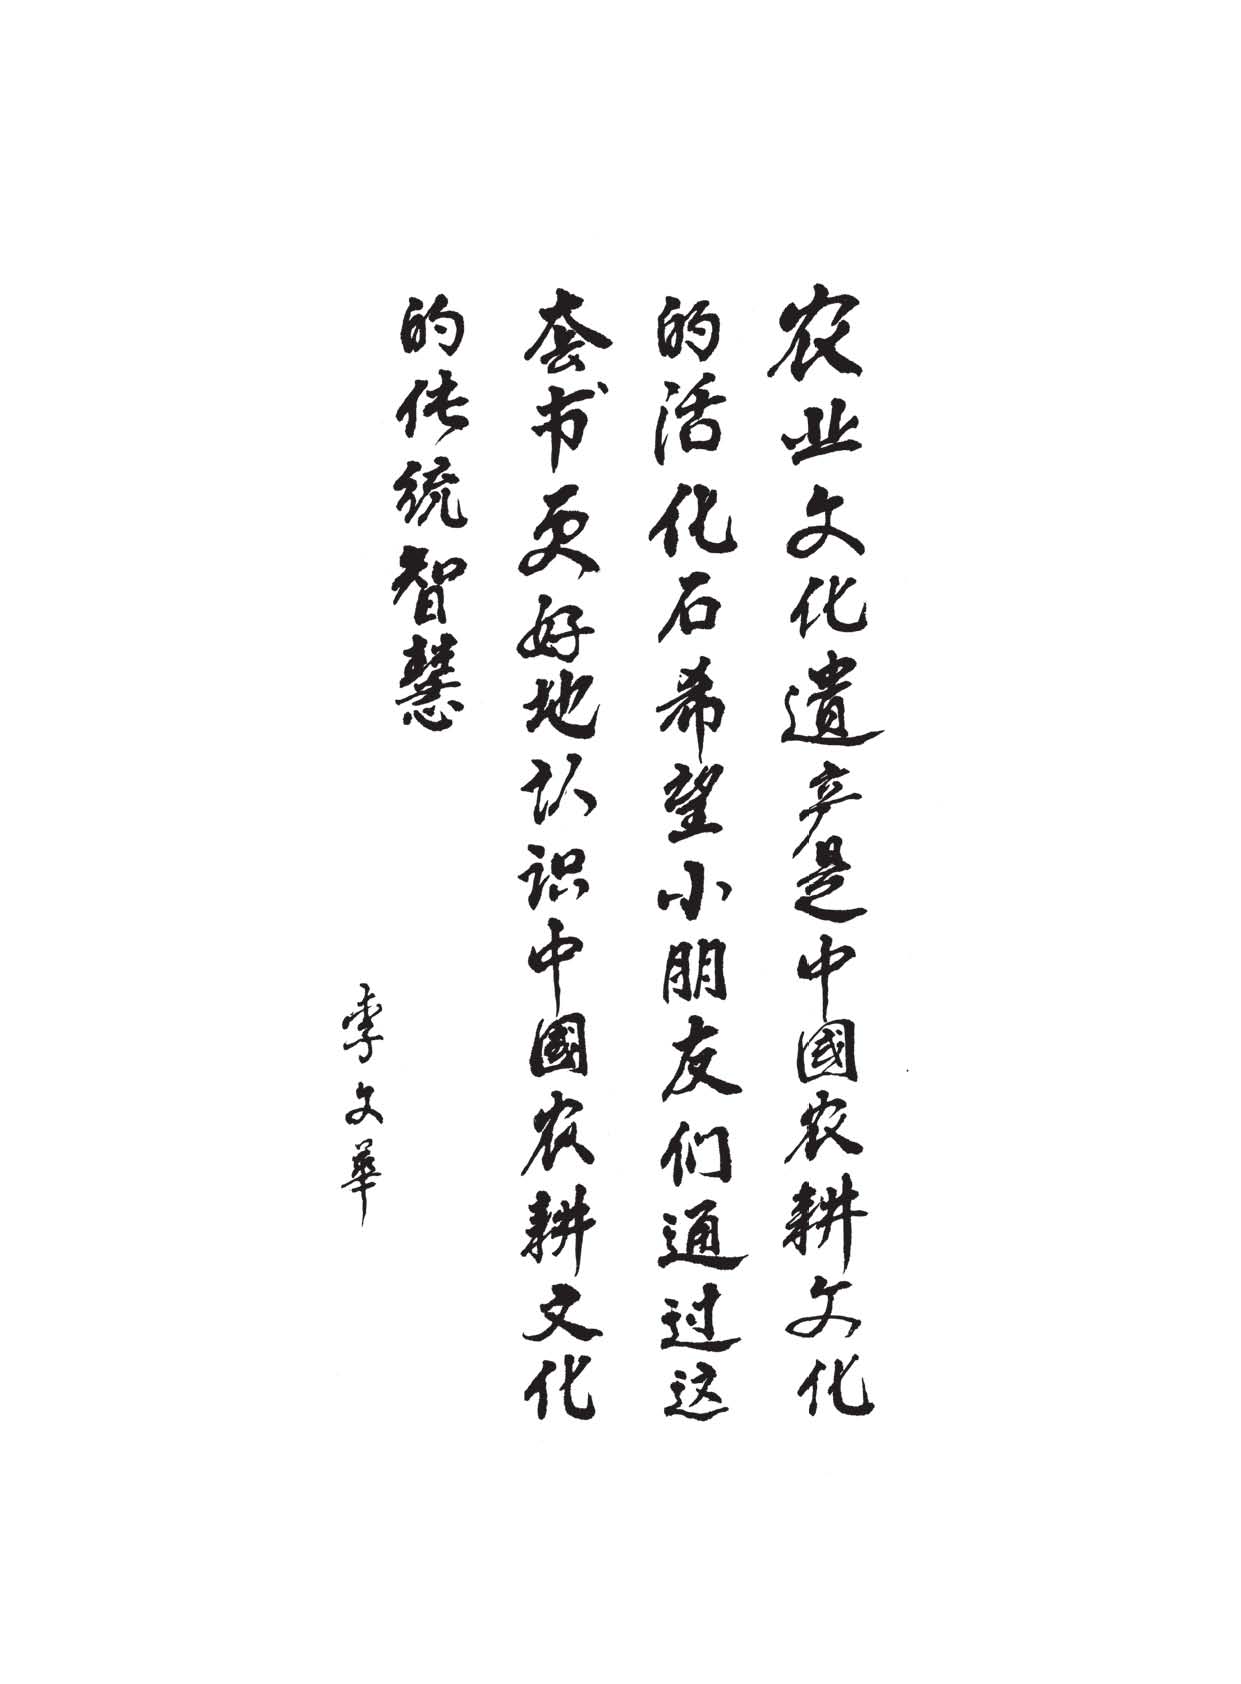 农业文化遗产是中國农耕文化
的活化石希望小朋友们通过这
套书更好地认识中國农耕文化
的传统智慧
李文華